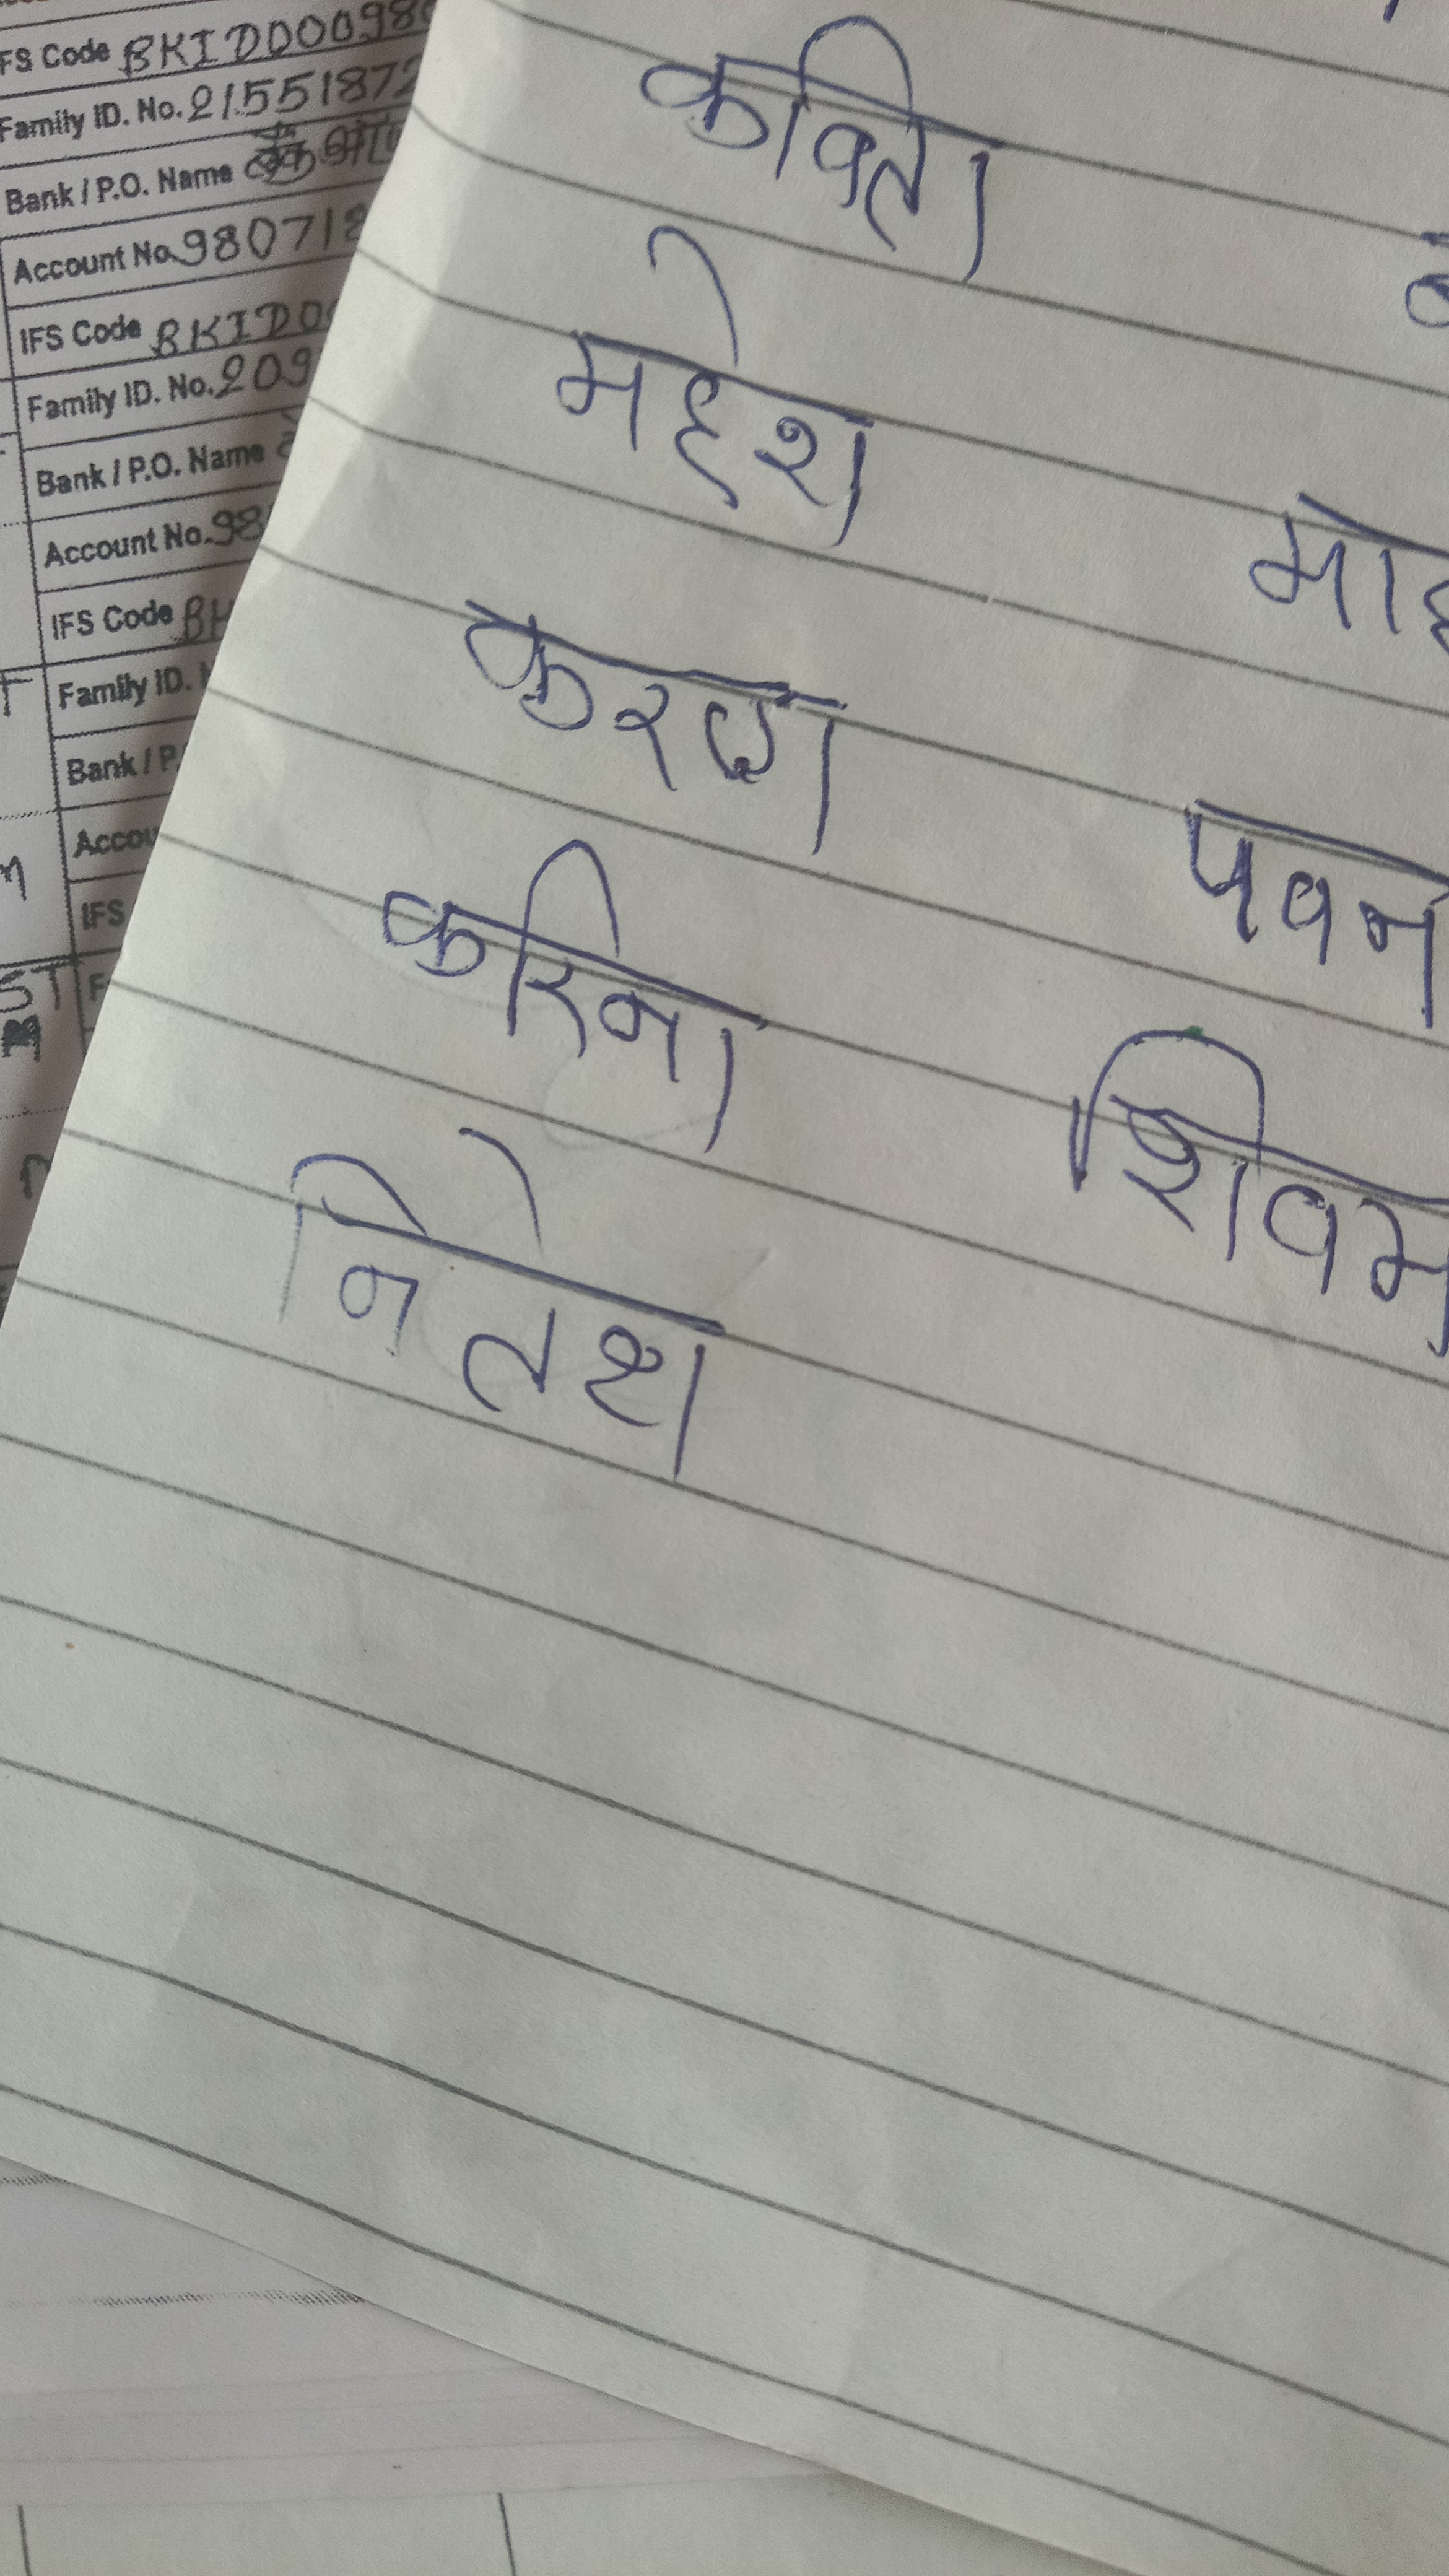 FS Code BKID000980
Family ID. No. 2155187
Bank / P.O. Name
Account No. 980718
IFS Code BKID00
Family ID. No. 209
Bank / P.O. Name
Account No. 98
IFS Code BK
Family ID.
Bank / P.
Accou
IFS
ST
कविता
महेश
करण पवन
करिना शिवम
नितेश